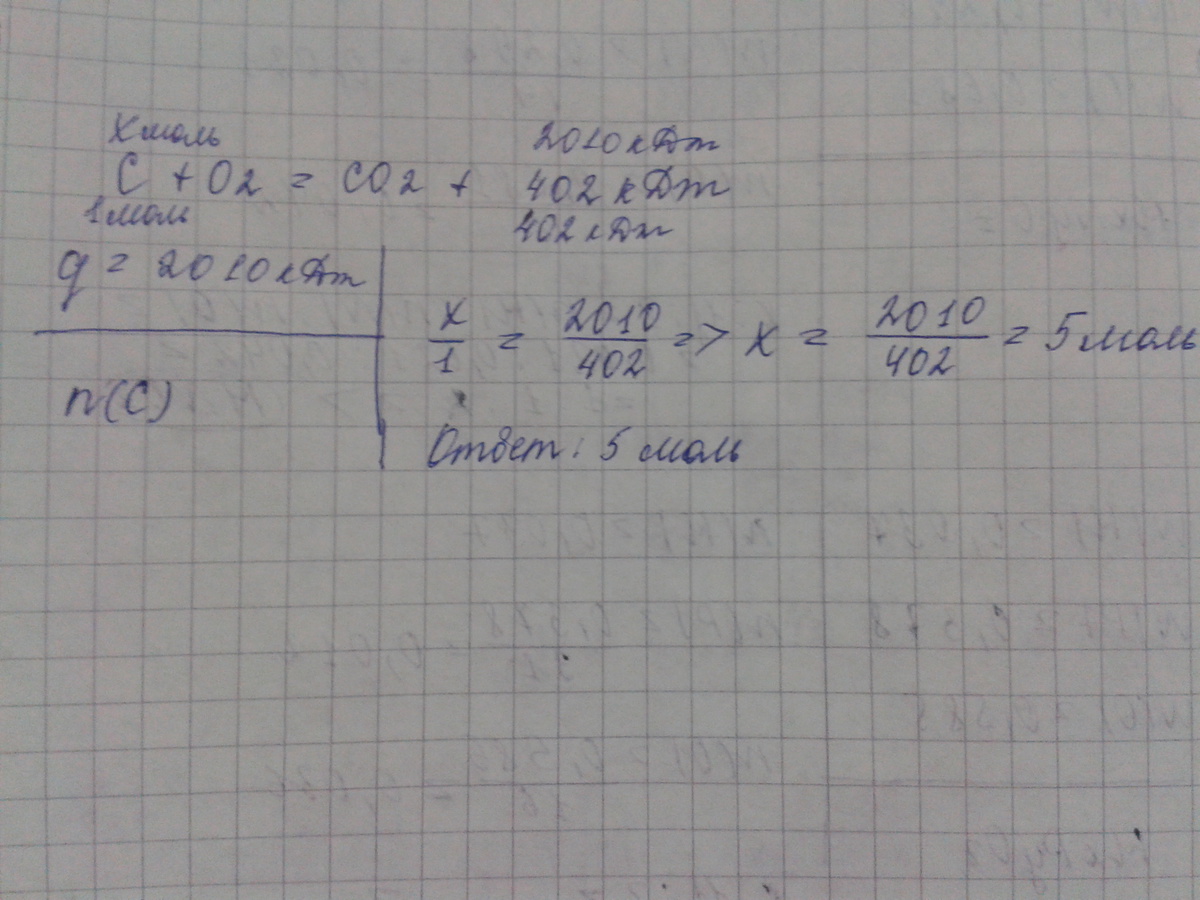 x моль 2010 кДж
C + O2 = CO2 + 402 кДж
1 моль 402 кДж
q = 2010 кДж
x/1 = 2010/402 => x = 2010/402 = 5 моль
n(C)
Ответ: 5 моль